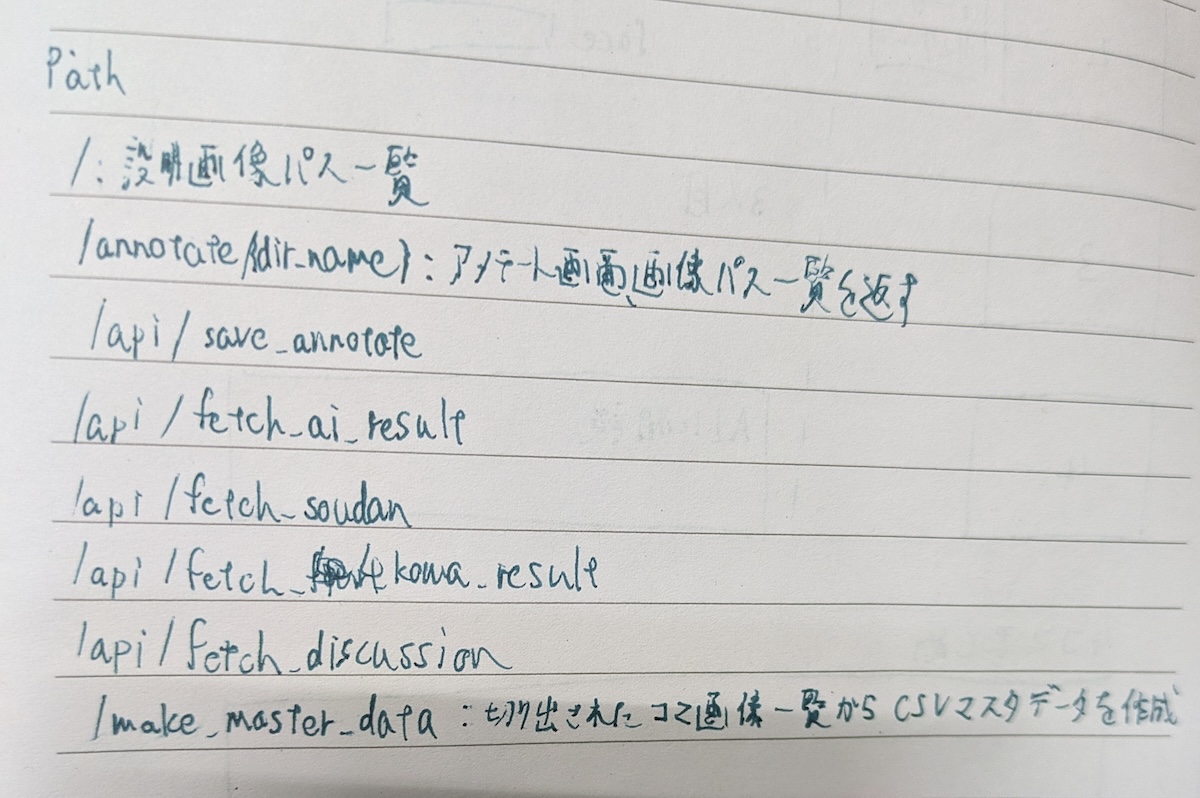 Path
/: 説明画像パス一覧
/annotate/{dir_name}: アノテート画面、画像パス一覧を返す
/api/save_annotate
/api/fetch_ai_result
/api/fetch_soudan
/api/fetch_kowa_result
/api/fetch_discussion
/make_master_data : 切り出されたコマ画像一覧からCSVマスタデータを作成